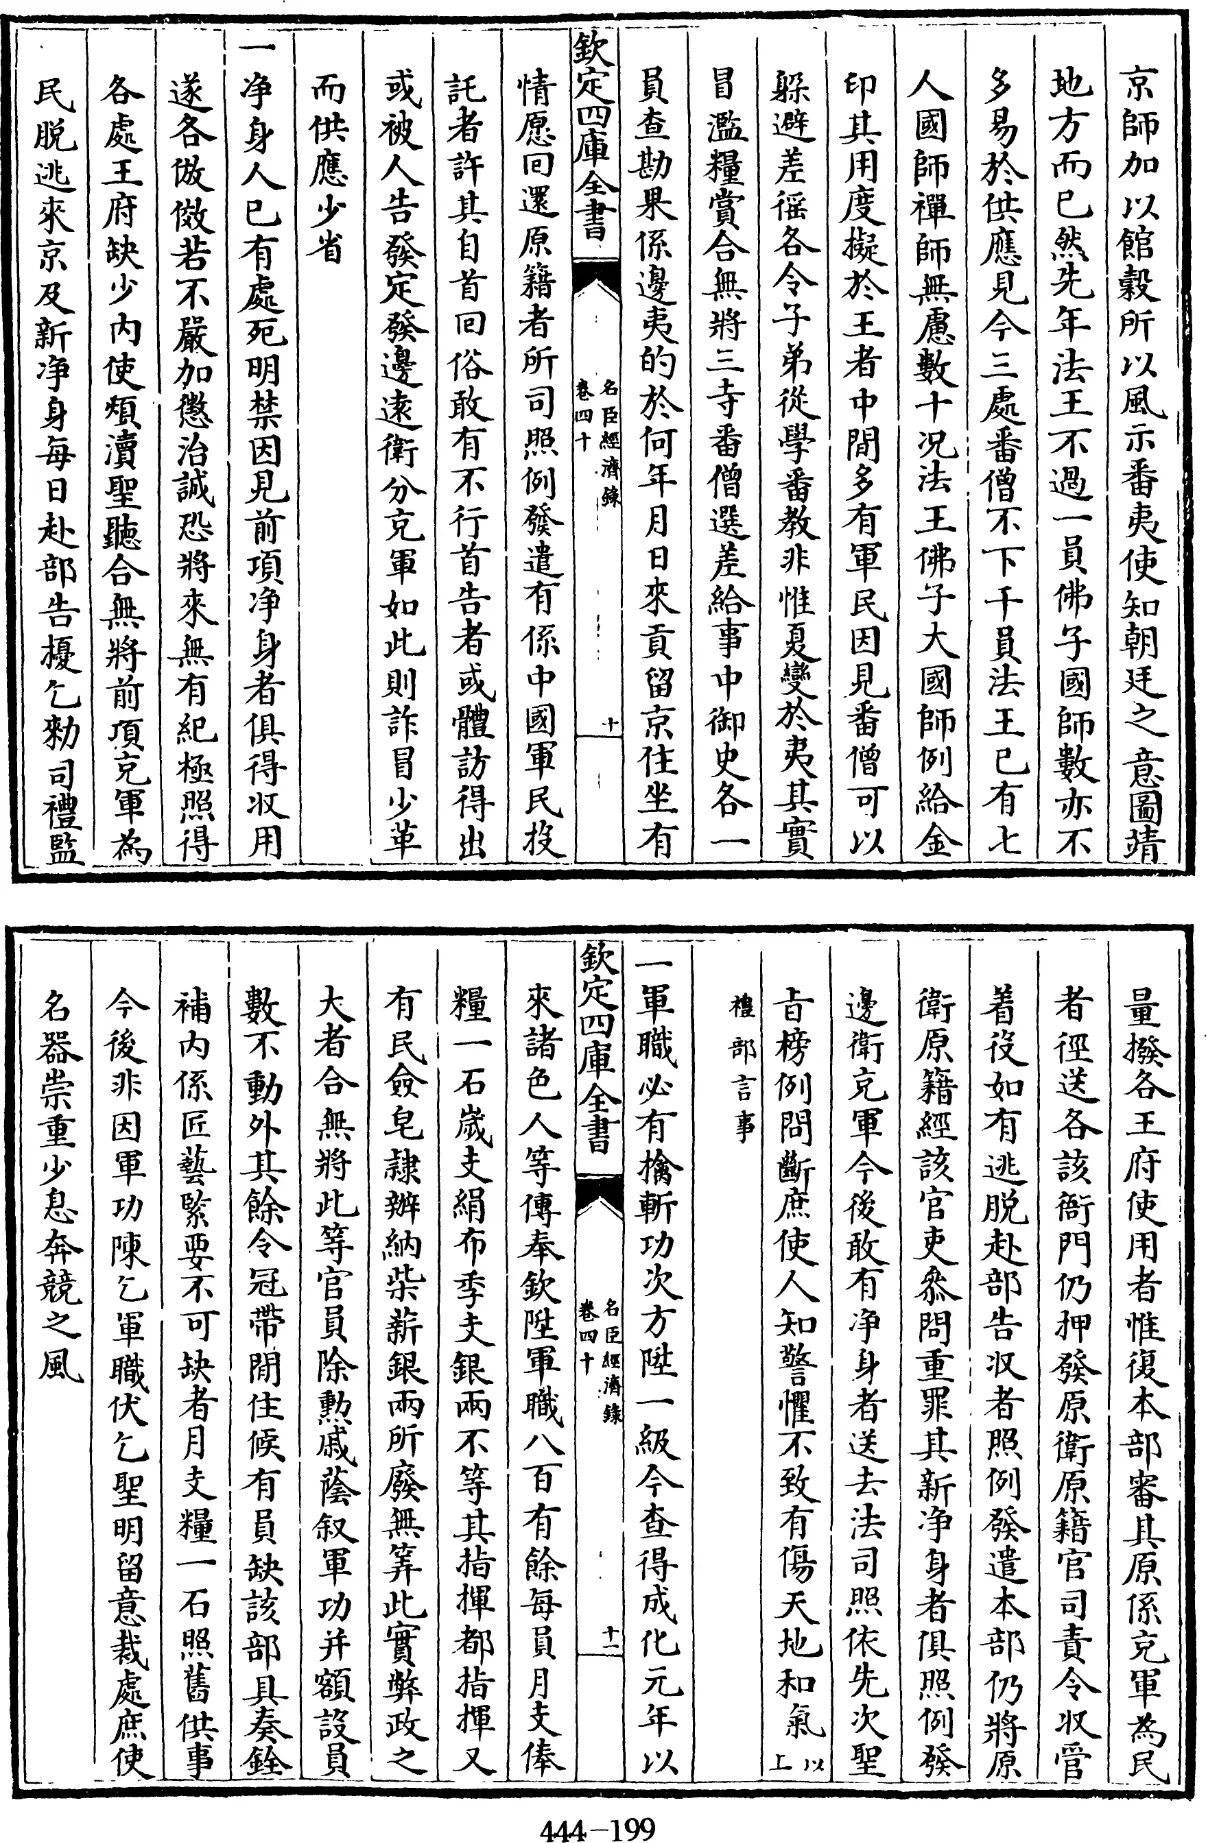 京師加以館穀所以風示番夷使知朝廷之意圖靖
地方而已然先年法王不過一員佛子國師數亦不
多易於供應見今三處番僧不下千員法王已有七
人國師禪師無慮數十况法王佛子大國師例給金
印其用度擬於王者中間多有軍民因見番僧可以
躱避差徭各令子弟從學番教非惟夏變於夷其實
冒濫糧賞合無將三寺番僧選差給事中御史各一
員查勘果係邊夷的於何年月日來貢留京住坐有
欽定四庫全書
名臣經濟錄
卷四十
十
情愿回還原籍者所司照例發遣有係中國軍民投
託者許其自首回俗敢有不行首告者或體訪得出
或被人告發定發邊逺衛分充軍如此則詐冒少革
而供應少省
一净身人已有處死明禁因見前項净身者俱得收用
遂各倣傚若不嚴加懲治誠恐將來無有紀極照得
各處王府缺少内使煩瀆聖聽合無將前項充軍為
民脱逃來京及新净身每日赴部告擾乞勑司禮監
量撥各王府使用者惟復本部審其原係充軍為民
者徑送各該衙門仍押發原衛原籍官司責令收管
着役如有逃脱赴部告收者照例發遣本部仍將原
衛原籍經該官吏叅問重罪其新净身者俱照例發
邊衛充軍今後敢有净身者送去法司照依先次聖
旨榜例問斷庶使人知警懼不致有傷天地和氣以上
禮部言事
一軍職必有擒斬功次方陞一級今查得成化元年以
欽定四庫全書
名臣經濟錄
卷四十
十一
來諸色人等傳奉欽陞軍職八百有餘每員月支俸
糧一石歲支絹布季支銀兩不等其指揮都指揮又
有民僉皂隷辦納柴薪銀兩所廢無筭此實弊政之
大者合無將此等官員除勲戚蔭叙軍功并額設員
數不動外其餘令冠帶閒住候有員缺該部具奏銓
補内係匠藝緊要不可缺者月支糧一石照舊供事
今後非因軍功陳乞軍職伏乞聖明留意裁處庶使
名器崇重少息奔競之風
444-199